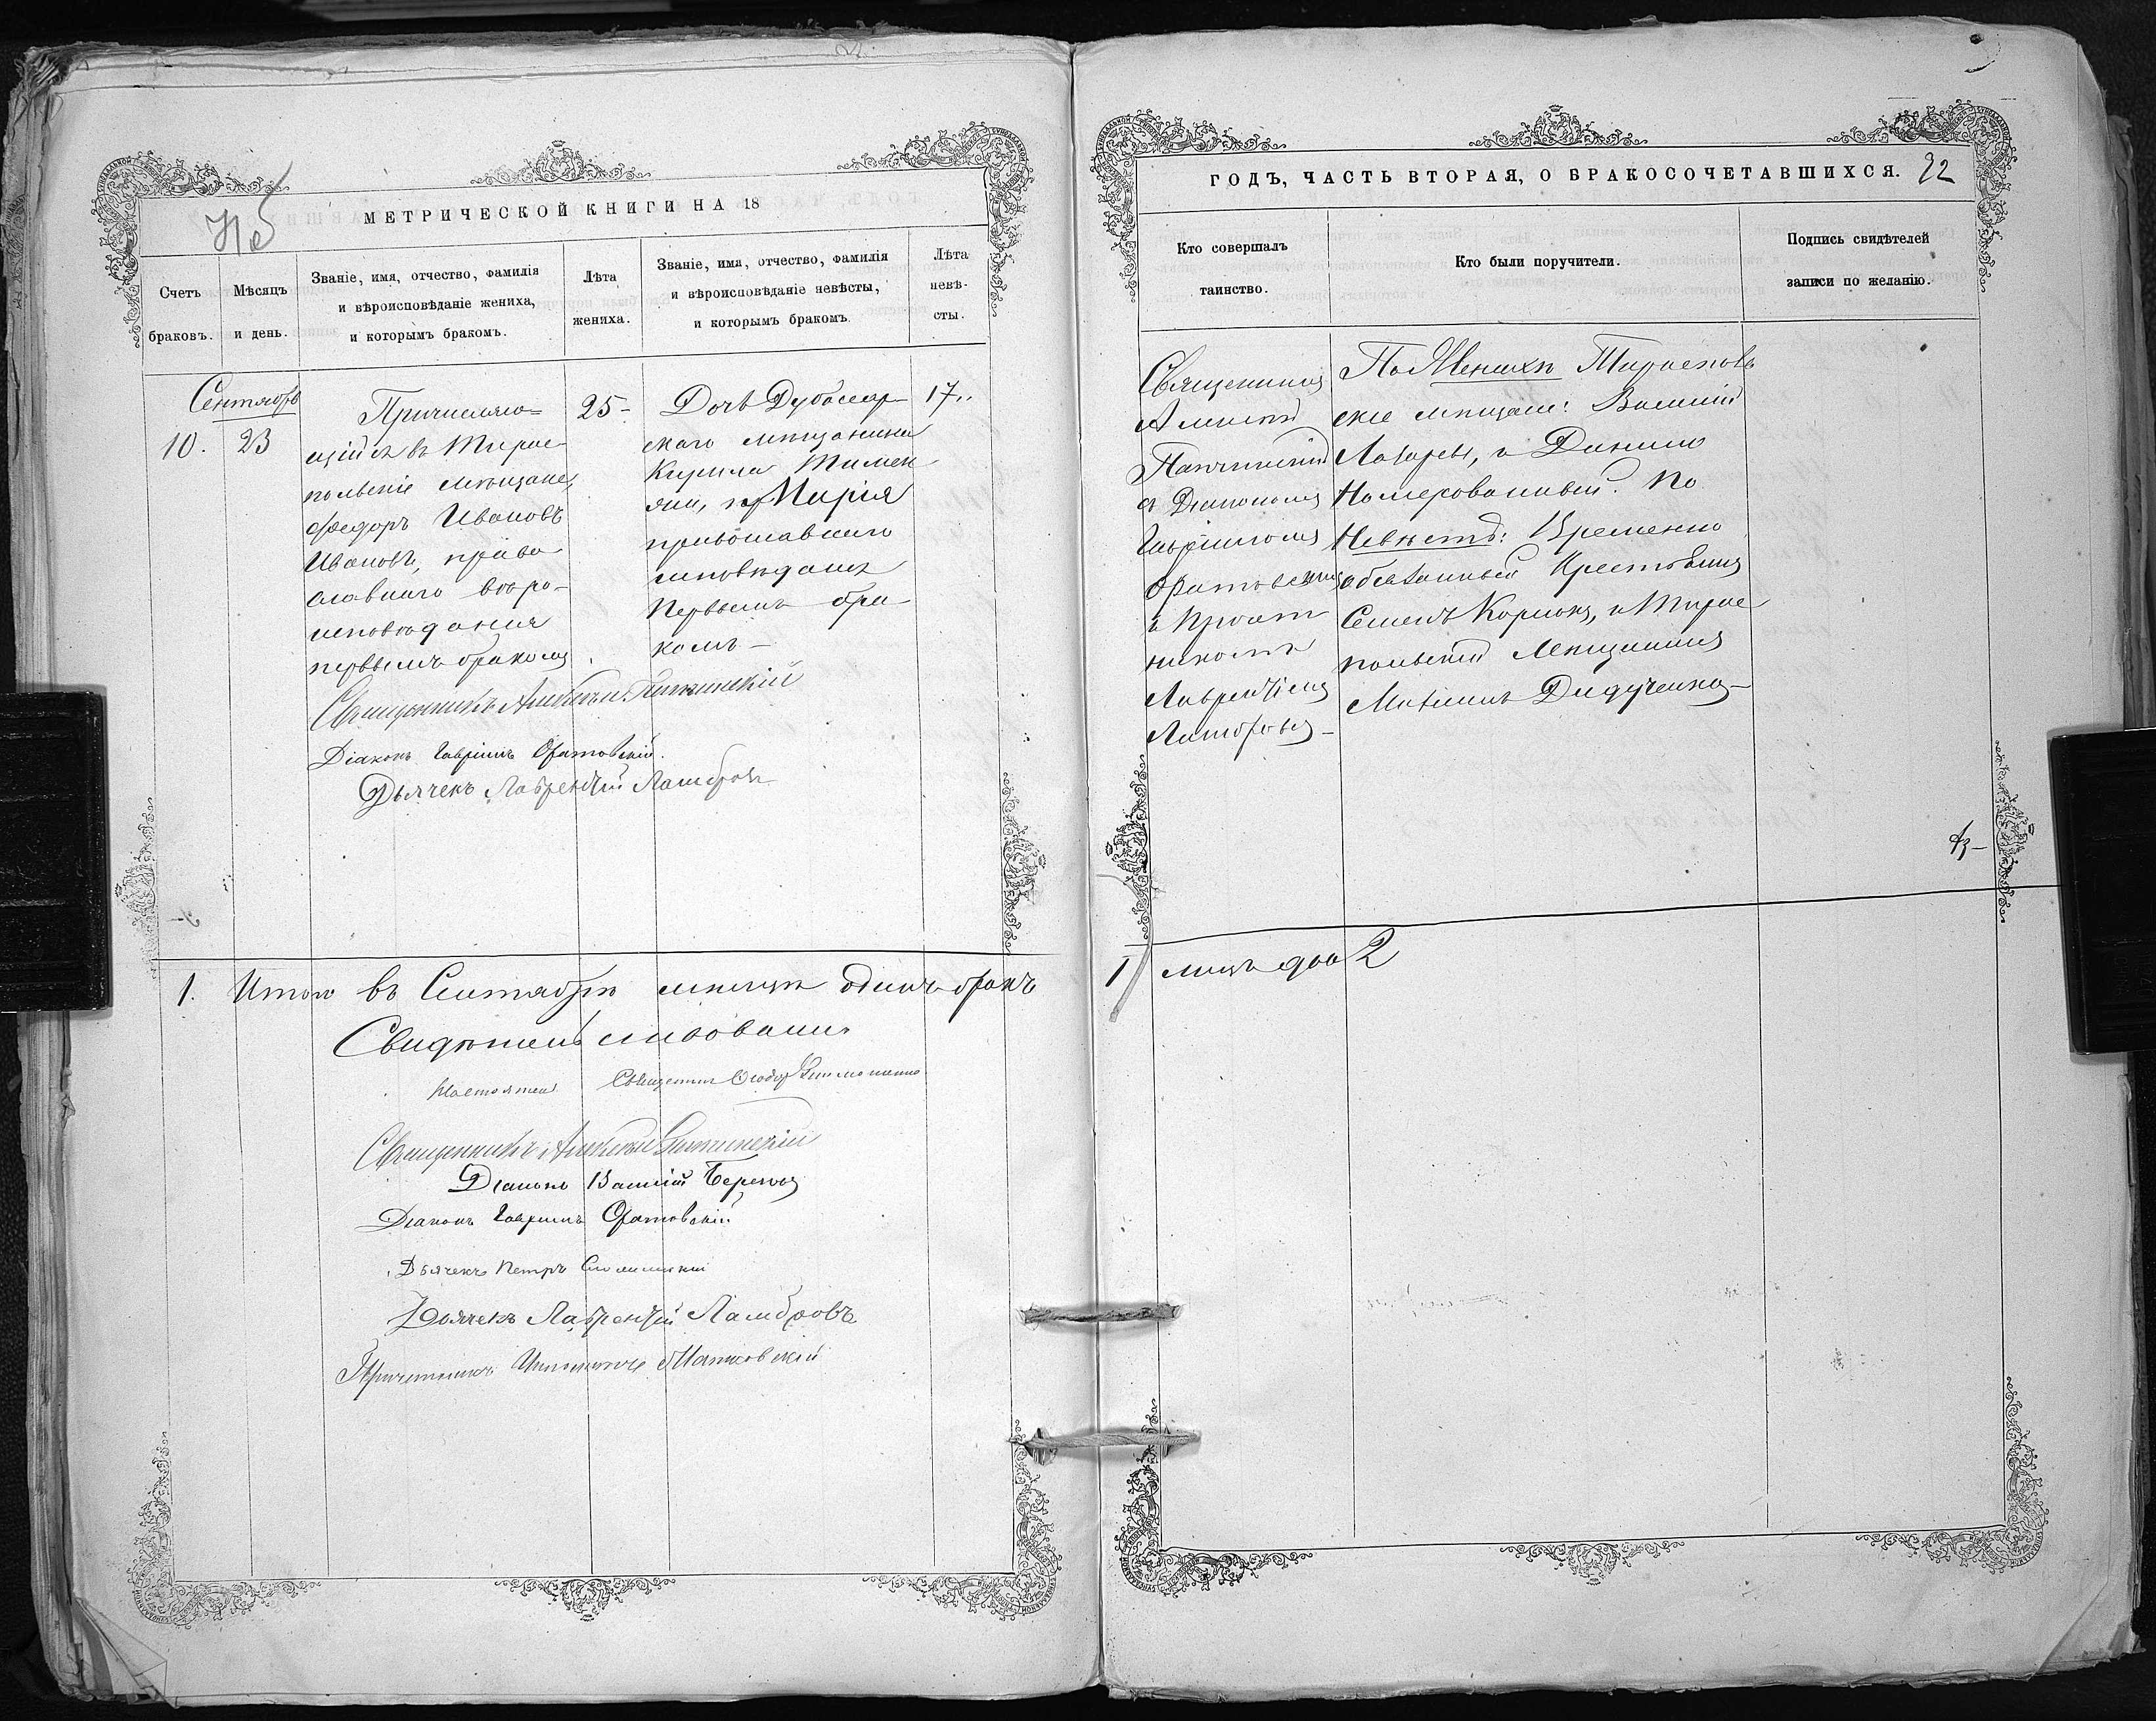 МЕТРИЧЕСКОЙ КНИГИ НА 18
Счетъ браковъ.
Мѣсяцъ и день.
Званіе, имя, отчество, фамилія
и вѣроисповѣданіе жениха,
и которымъ бракомъ.
Лѣта
жениха.
Званіе, имя, отчество, фамилія
и вѣроисповѣданіе невѣсты,
и которымъ бракомъ
Лѣта
невѣ-
сты.
Сентябрь
10. 23
Причисляю=
щійся въ Тирас
польскіе мѣщане,
Ѳедоръ Ивановъ
Ивановъ, право
славнаго вѣро-
исповѣданія
первымъ бракомъ
25-
Дочь Дубоссар
скаго мѣщанина
Кирила
Марія
православнаго
исповѣданія
Первымъ бра
комъ-
17..
Священникъ Алексѣй
Діаконъ Гавріилъ Оратовскій.
Дьячекъ Лаврентій Ламбровъ
1. Итого въ Сентябрѣ мѣсяцѣ одинъ бракъ
Свидѣтельствовали
Настоятель Священникъ Ѳеодоръ
Священникъ Алексѣй
Діаконъ Василій
Діаконъ Гавріилъ Оратовскій
Дьячекъ Петръ
Дьячекъ Лаврентій Ламбровъ
Причетникъ
ГОДЪ, ЧАСТЬ ВТОРАЯ, О БРАКОСОЧЕТАВШИХСЯ. 22
Кто совершалъ
таинство.
Кто были поручители.
Подпись свидѣтелей
записи по желанію.
Священникъ
Алексѣй
съ Діакономъ
Гавріиломъ
Оратовскимъ
и Причет
никомъ
Лаврентіемъ
Ламбровымъ-
По Женихѣ Тираспольс
кіе мѣщане: Василій
Лазаревъ, и Данило
По
Невѣстѣ: Временно
обязанный Крестьянинъ
Семенъ и Тирас
польскій Мѣщанинъ
Максимъ Дидученко-
1 лицъ двое 2